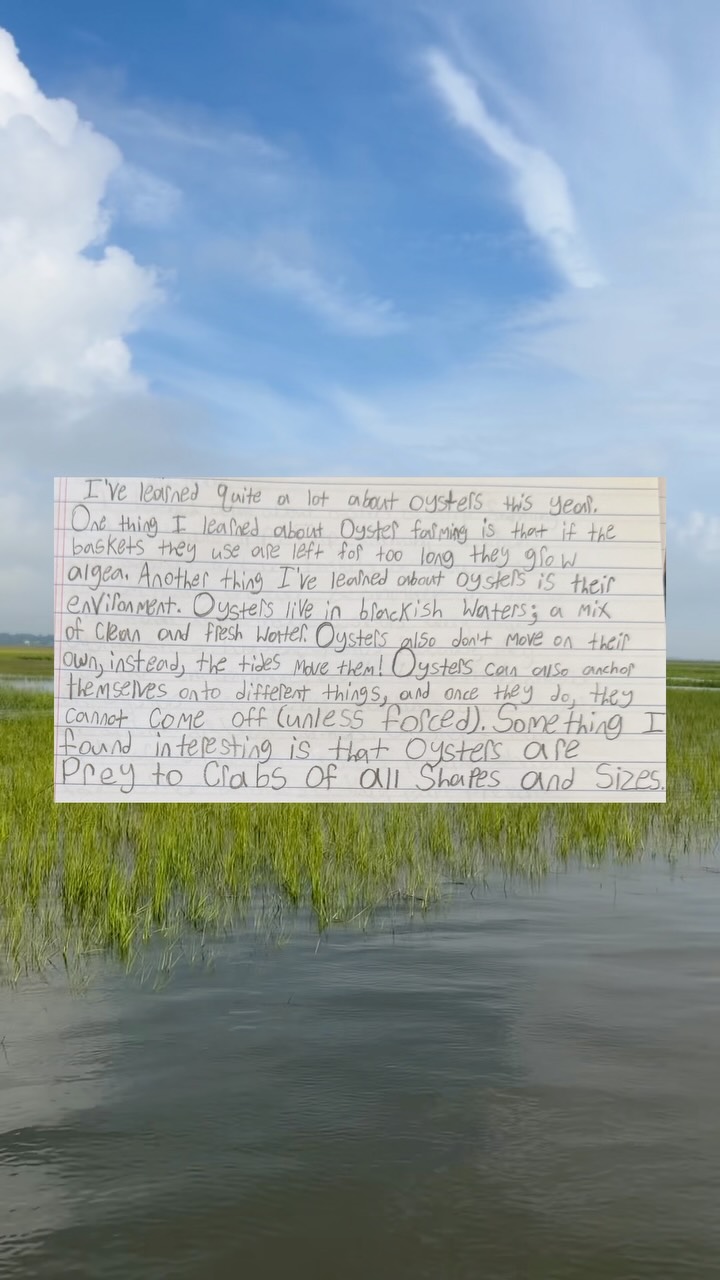 I've learned quite a lot about oysters this year.
One thing I learned about Oyster farming is that if the
baskets they use are left for too long they grow
algea. Another thing I've learned about oysters is their
environment. Oysters live in brackish waters; a mix
of clean and fresh water. Oysters also don't move on their
own, instead, the tides move them! Oysters can also anchor
themselves onto different things, and once they do, they
cannot come off (unless forced). Something I
found interesting is that Oysters are
Prey to Crabs of all Shapes and Sizes.